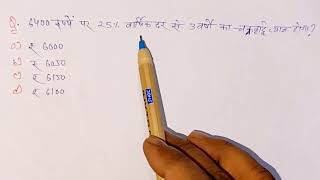 Q. 6400 रूपये पर 25% वार्षिक दर से 3 वर्षों का चक्रवृद्धि ब्याज होगा?
a) ₹ 6000
b) ₹ 6050
c) ₹ 6150
d) ₹ 6100